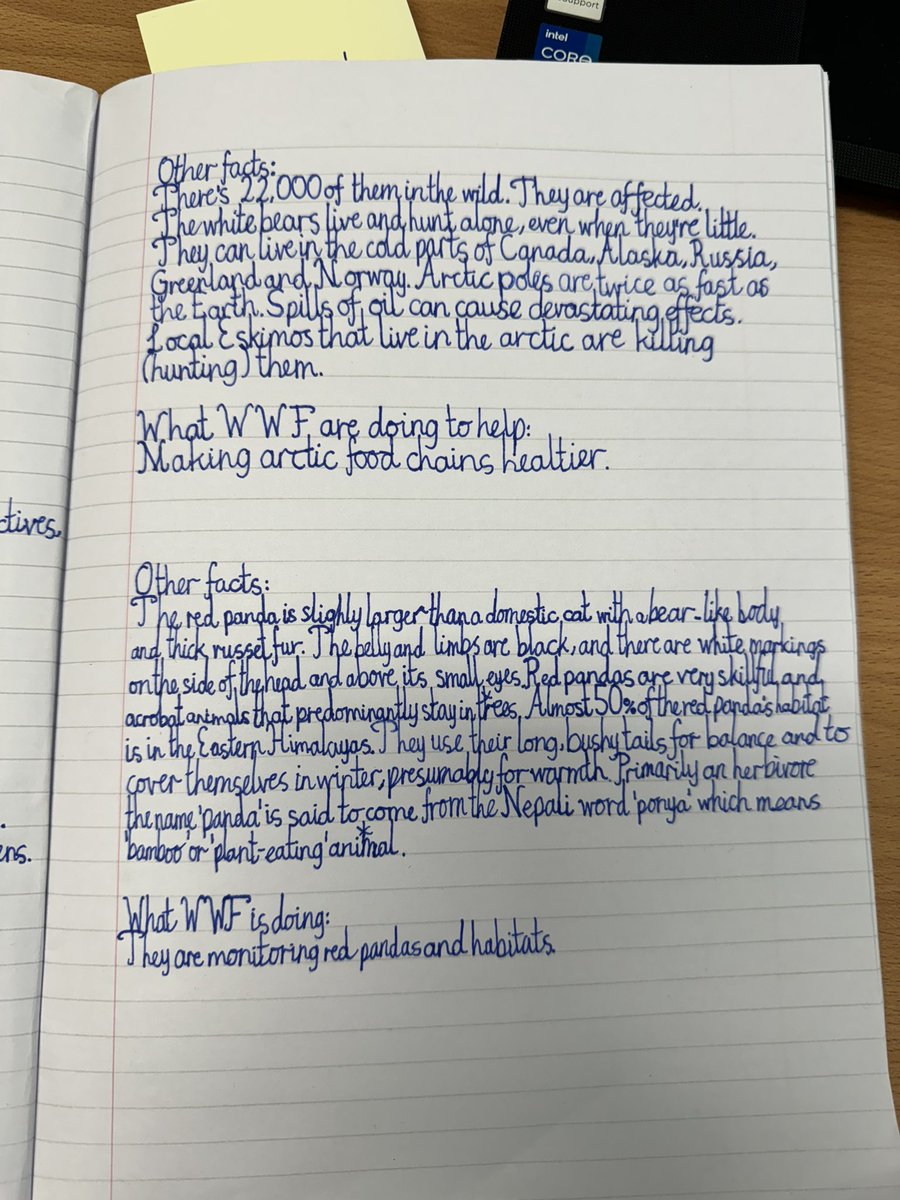 support
intel
CORE
Other facts:
There's 22,000 of them in the wild. They are affected.
The white bears live and hunt alone, even when they're little.
They can live in the cold parts of Canada, Alaska, Russia,
Greenland and Norway. Arctic poles are twice as fast as
the Earth. Spills of oil can cause devastating effects.
Local Eskimos that live in the arctic are killing
(hunting) them.
What WWF are doing to help:
Making arctic food chains healtier.
ctives.
Other facts:
The red panda is slighly larger than a domestic cat with a bear-like body
and thick russet fur. The belly and limbs are black, and there are white markings
on the side of the head and above its small eyes. Red pandas are very skillful and
acrobat animals that predominantly stay in trees. Almost 50% of the red panda's habitat
is in the Eastern Himalayas. They use their long, bushy tails for balance and to
cover themselves in winter, presumably for warmth. Primarily an herbivore
the name 'panda' is said to come from the Nepali word 'ponya' which means
'bamboo' or 'plant-eating' animal.
ens.
What WWF is doing:
They are monitoring red pandas and habitats.